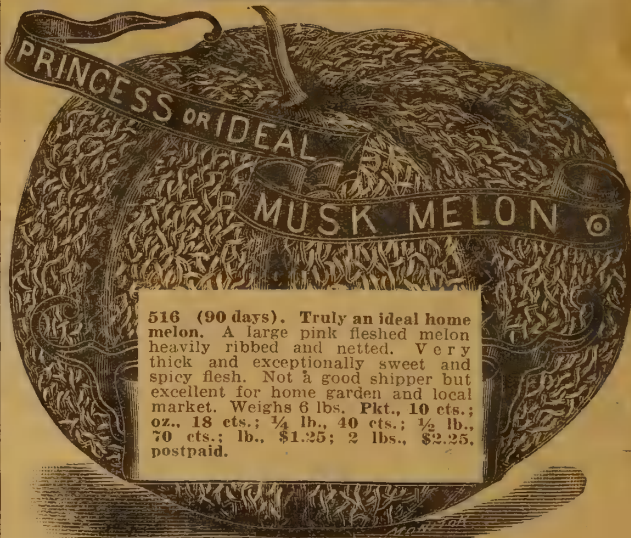 PRINCESS OR IDEAL
MUSK MELON
516 (90 days). Truly an ideal home
melon. A large pink fleshed melon
heavily ribbed and netted. Very
thick and exceptionally sweet and
spicy flesh. Not a good shipper but
excellent for home garden and local
market. Weighs 6 lbs. Pkt., 10 cts.;
oz., 18 cts.; ¼ lb., 40 cts.; ½ lb.,
70 cts.; lb., $1.25; 2 lbs., $2.25,
postpaid.
MONITOR